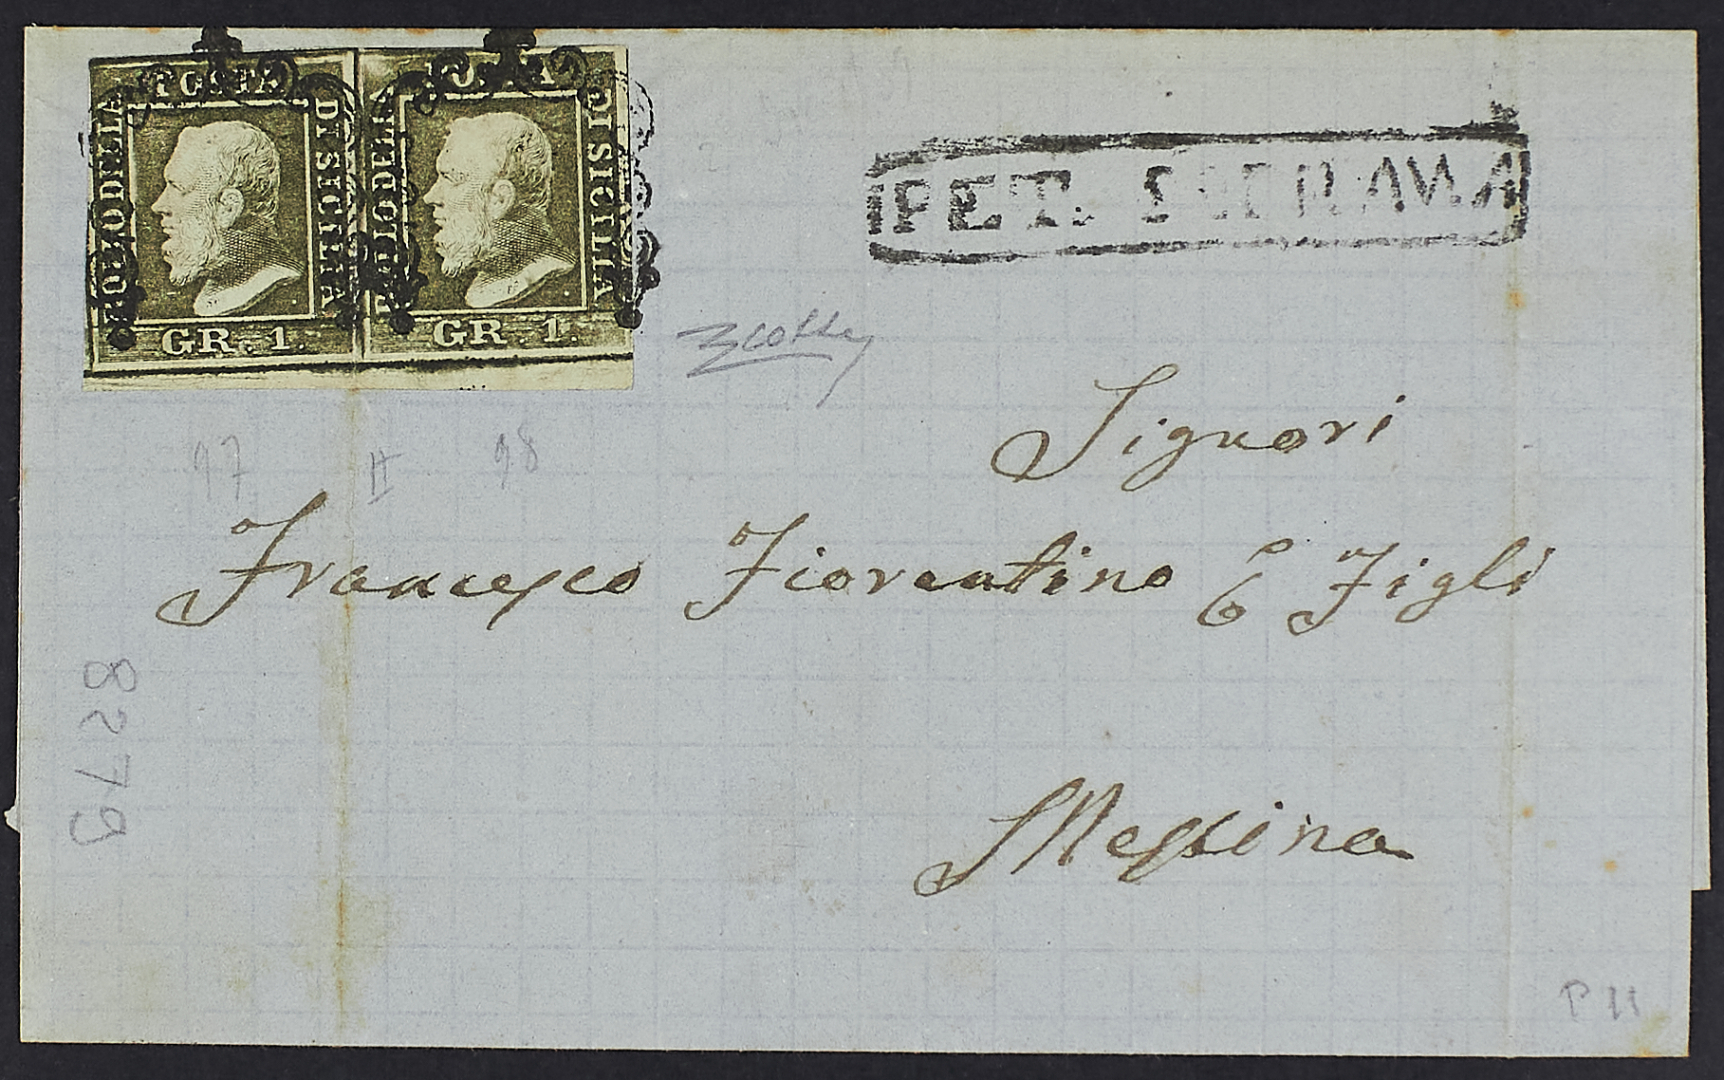 POSTA
BOLLO DELLA
DI SICILIA
GR. 1.
POSTA
BOLLO DELLA
DI SICILIA
GR. 1.
PET.
97 II 98
Signori
Francesco Fiorentino e Figli
Messina
8279
P II